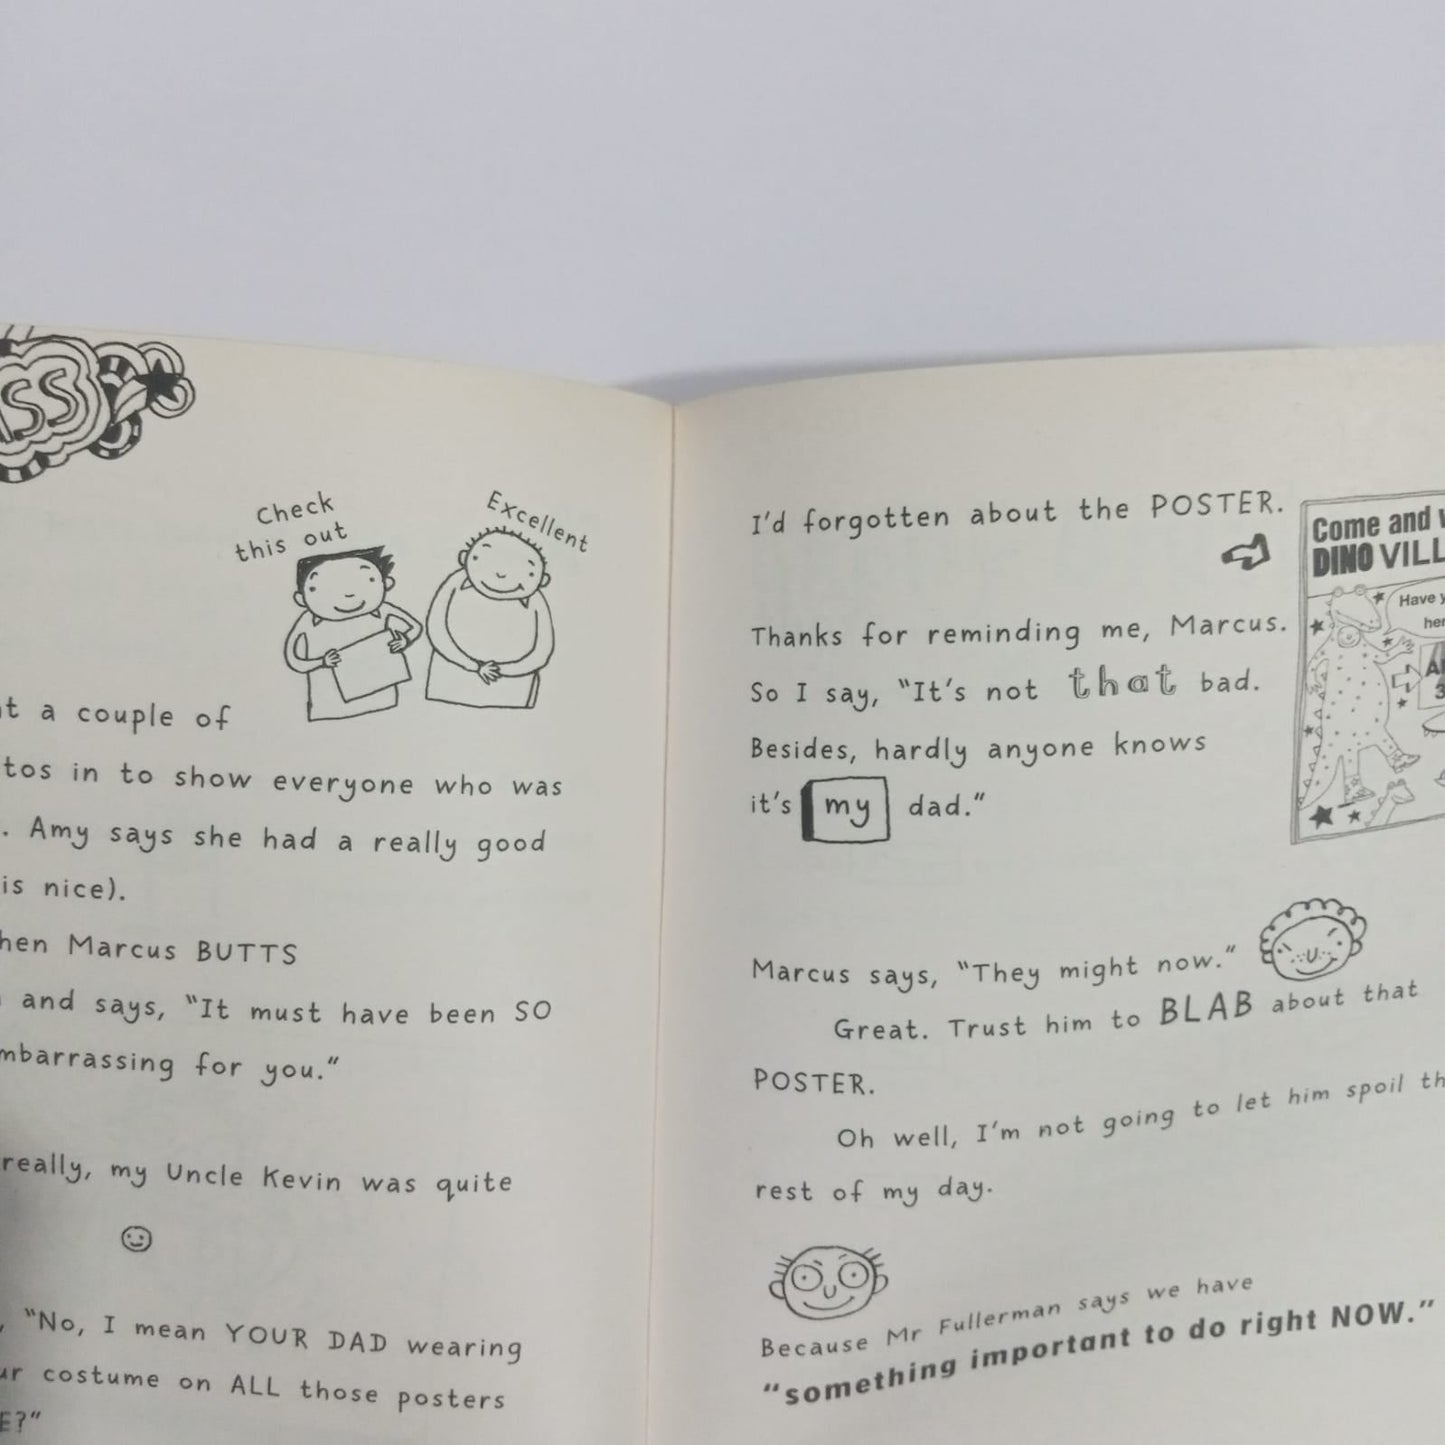 ISS
Check
this out
Excellent
a couple of
in to show everyone who was
. Amy says she had a really good
is nice).
Marcus BUTTS
and says, “It must have been SO
for you.”
really, my Uncle Kevin was quite
“No, I mean YOUR DAD wearing
costume on ALL those posters
I’d forgotten about the POSTER.
Thanks for reminding me, Marcus.
So I say, “It’s not that bad.
Besides, hardly anyone knows
it’s my dad.”
Come and
DINO
Have
Marcus says, “They might now.”
Great. Trust him to BLAB about that
POSTER.
Oh well, I’m not going to let him spoil
rest of my day.
Because Mr Fullerman says we have
“something important to do right NOW.”